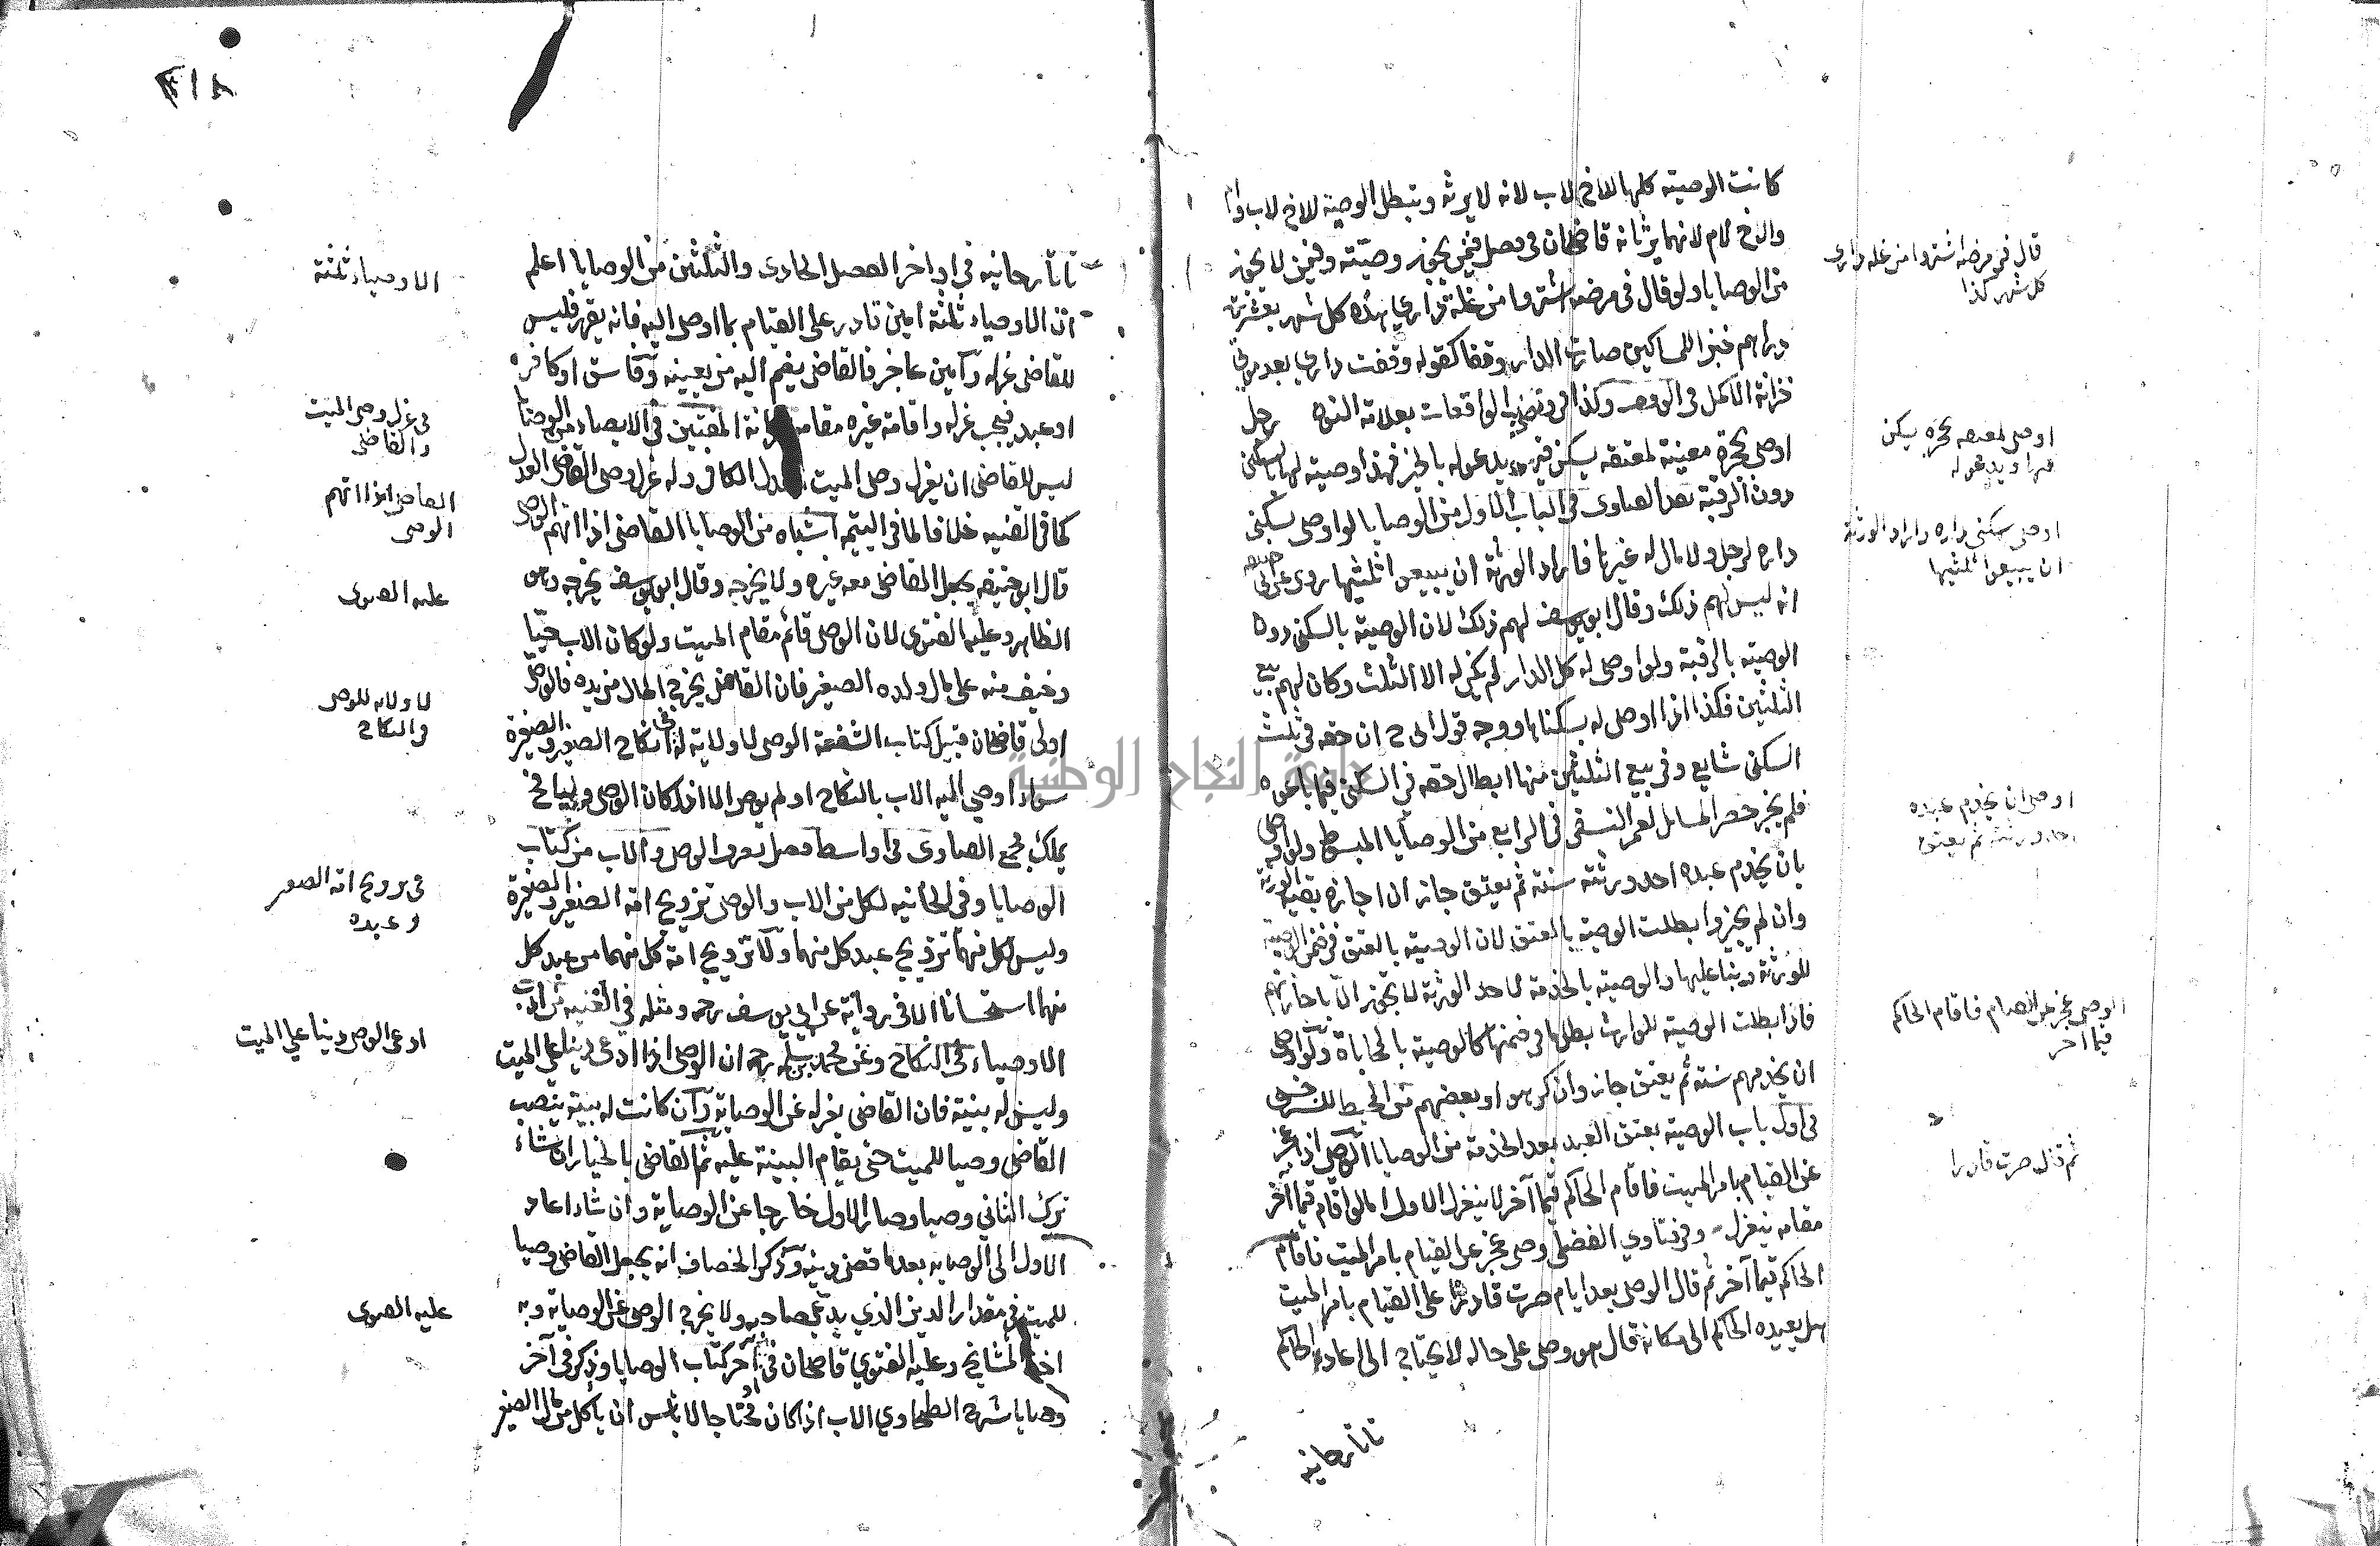 كانت الوصية كلها للاخ لاب لانه لا يرثه وتبطل الوصية للاخ لاب وام
والاخ لام لانهما يرثانه قاضيخان في فصل فيمن يجوز وصيته وفيمن لا يجوز
من الوصايا ولو قال في مرضه اشتروا من غلة داري هذه كل شهر بعشرة
دراهم خبزا للمساكين صارت الدار وقفا كقوله وقفت داري بعد موتي
خزانة الاكمل في الوقف وكذا في الواقعات بعلامة النون رجل
اوصى بحجرة معينة لمعتقه يسكن فيها ويدعو له بالخير فهذا وصية لها بالسكنى
دون الرقبة الفتاوى في الباب الاول من الوصايا لو اوصى بسكنى
داره لرجل ولا مال له غيرها فاراد الورثة ان يبيعوا ثلثيها روى عن ابي حنيفه
انه ليس لهم ذلك وقال ابو يوسف لهم ذلك لان الوصية بالسكنى دون
الوصية بالرقبة ولو اوصى له كل الدار لم يكن له الا الثلث وكان لهم بيع
الثلثين فكذا اذا اوصى له بسكناها ووجه قول ابي ح ان حقه في ثلث
السكنى شايع وفي بيع الثلثين منها ابطال حقه في السكنى فيما باعوه
فلم يجز حصر المسائل لعمر النسفي في الرابع من الوصايا المبسوط ولو اوصى
بان يخدم عبده احد ورثته سنة ثم يعتق جاز ان اجازه بقية الورثة
وان لم يجيزوا بطلت الوصية بالعتق لان الوصية بالعتق في ضمن الوصية
للورثة وبناء عليها والوصية بالخدمة لاحد الورثة لا تجوز الا باجازتهم
فاذا بطلت الوصية للوارث بطل ما في ضمنها كالوصية بالمحاباة ولو اوصى
ان يخدمهم سنة ثم يعتق جاز وان كرهوا او بعضهم من المحيط للسرخسي
في اول باب الوصية بعتق العبد بعد الخدمة من الوصايا الوصي اذا عجز
عن القيام بامر الميت فاقام الحاكم قيما آخر لا ينعزل الاول اما لو اقام قيما آخر
مقامه ينعزل وفي فتاوي الفضلي وصي عجز عن القيام بامر الميت فاقام
الحاكم قيما آخر ثم قال الوصي بعد ايام صرت قادرا على القيام بامر الميت
هل يعيده الحاكم الى مكانه قال هو وصي على حاله لا يحتاج الى اعادة الحاكم
تاتارخانيه
قال في مرضه اشتروا من غلة داري
كل شهر كذا
اوصى لمعتقه بحجرة يسكن
فيها ويدعو له
اوصى بسكنى داره واراد الورثة
ان يبيعوا ثلثيها
اوصى ان يخدم عبده
احد ورثته ثم يعتق
الوصي عجز عن القيام فاقام الحاكم
قيما آخر
ثم قال صرت قادرا
٣١٨
تاتارخانيه في اواخر الفصل الحادى والثلثين من الوصايا اعلم
ان الاوصياء ثلثة امين قادر على القيام بما اوصى اليه فانه يقرر فليس
للقاضي عزله وامين عاجز فالقاضي يضم اليه من يعينه وفاسق او كافر
او عبد فيجب عزله واقامة غيره مقامه خزانة المفتين في الايصاء من الوصايا
ليس للقاضي ان يعزل وصي الميت العدل الكافي وله عزل وصي القاضي العدل
كما في القنيه خلافا لما في اليتيمه اشباه من الوصايا القاضي اذا اتهم الوصي
قال ابو حنيفه يجعل القاضي معه غيره ولا يخرجه وقال ابو يوسف يخرجه وهو
الظاهر وعليه الفتوى لان الوصي قائم مقام الميت ولو كان الاب حيا
وخيف منه على مال ولده الصغير فان القاضي يخرج المال من يده فالوصي
اولى قاضيخان قبيل كتاب الشفعة الوصي لا ولاية له في انكاح الصغير والصغيرة
سواء اوصي اليه الاب بالنكاح او لم يوص الا اذا كان الوصي وليا فح
يملك مجمع الفتاوى في اواسط فصل تصرف الوصي والاب من كتاب
الوصايا وفي الخانيه لكل من الاب والوصي تزويج امة الصغير والصغيرة
وليس لكل منهما تزويج عبد كل منهما ولا تزويج امة كل منهما من عبد كل
منهما استحسانا الا في رواية عن ابي يوسف رحمه ومثله في القنيه من ادب
الاوصياء في النكاح وعن محمد بن سلمه رحمه ان الوصي اذا ادعى دينا على الميت
وليس له بينة فان القاضي يعزله عن الوصاية وان كانت له بينة ينصب
القاضي وصيا للميت حتى يقام البينة عليه ثم القاضي بالخيار ان شاء
ترك الثاني وصيا وصار الاول خارجا عن الوصاية وان شاء اعاد
الاول الى الوصاية بعدما قضى دينه وذكر الخصاف انه يجعل القاضي وصيا
للميت في مقدار الدين الذي يدعي صاحبه ولا يخرج الوصي عن الوصاية وبه
اخذ المشايخ وعليه الفتوي قاضيخان في آخر كتاب الوصايا وذكر في آخر
وصايا شرح الطحاوي الاب اذا كان محتاجا لا باس ان ياكل من مال الصغير
الاوصياء ثلثة
في عزل وصي الميت
والقاضي
القاضي اذا اتهم
الوصي
عليه الفتوى
لا ولاية للوصي
في النكاح
في تزويج امة الصغير
وعبده
ادعى الوصي دينا على الميت
عليه الفتوى
جامعة النجاح الوطنية